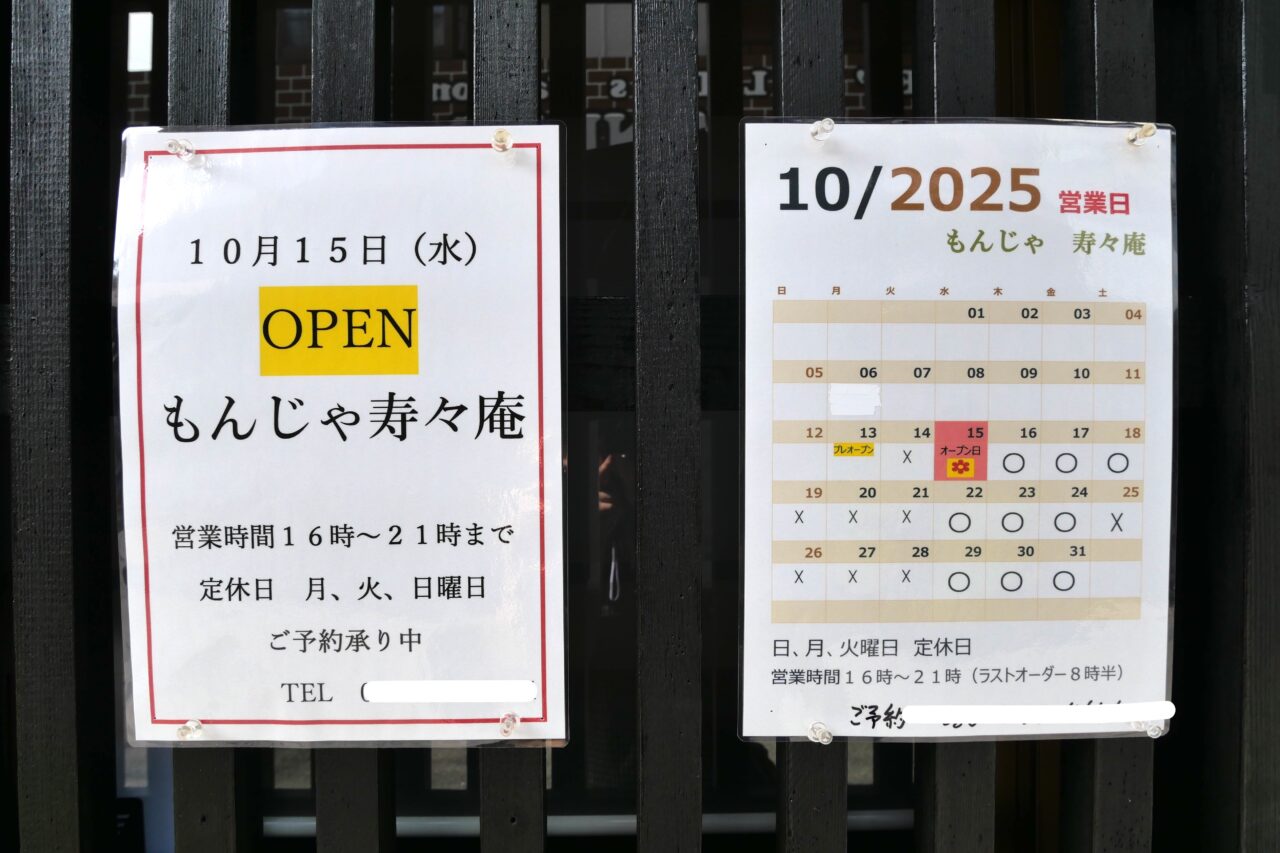 10月15日（水）
OPEN
もんじゃ寿々庵
営業時間16時～21時まで
定休日　月、火、日曜日
ご予約承り中
TEL
10/2025 営業日
もんじゃ　寿々庵
日 月 火 水 木 金 土
01 02 03 04
05 06 07 08 09 10 11
12 13 14 15 16 17 18
プレオープン X オープン日 ○ ○ ○
19 20 21 22 23 24 25
X X X ○ ○ ○ X
26 27 28 29 30 31
X X X ○ ○ ○
日、月、火曜日　定休日
営業時間16時～21時（ラストオーダー8時半）
ご予約